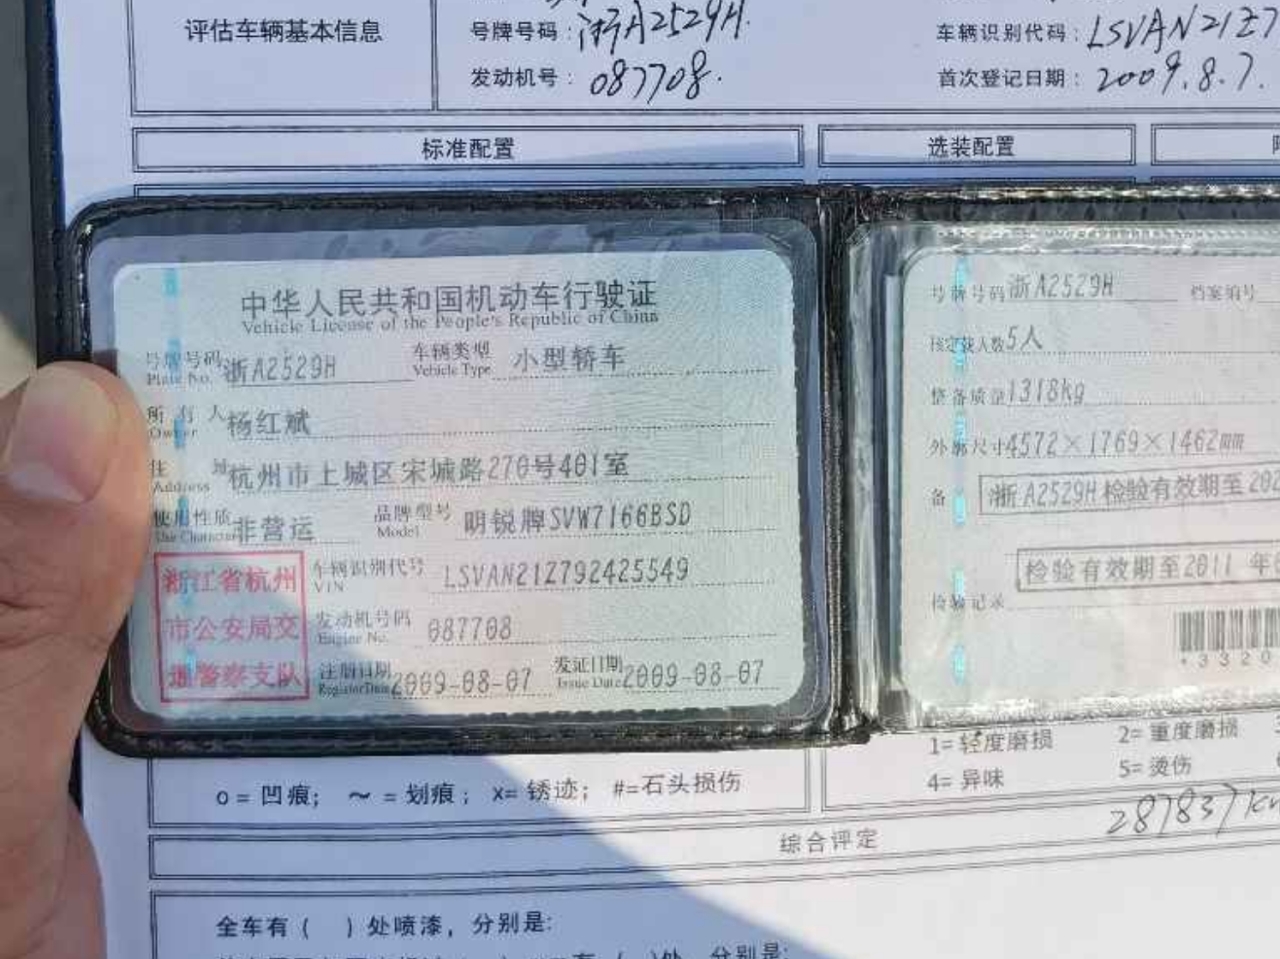 评估车辆基本信息
号牌号码：浙A2529H
车辆识别代码：LSVAN21Z7
发动机号：087708.
首次登记日期：2009.8.7.
标准配置
选装配置
中华人民共和国机动车行驶证
Vehicle License of the People's Republic of China
号牌号码 浙A2529H 车辆类型 小型轿车
Plate No. Vehicle Type
所有人 杨红斌
Owner
住址 杭州市上城区宋城路270号401室
Address
使用性质 非营运 品牌型号 明锐牌SVW7166BSD
Use Character Model
浙江省杭州
市公安局交
通警察支队
车辆识别代号 LSVAN21Z792425549
VIN
发动机号码 087708
Engine No.
注册日期 2009-08-07 发证日期 2009-08-07
Register Date Issue Date
号牌号码 浙A2529H 档案编号
核定载人数 5人
整备质量 1318kg
外廓尺寸 4572×1769×1462mm
备 浙A2529H检验有效期至202
检验有效期至2011 年0
检验记录
*3320
1=轻度磨损 2=重度磨损
4=异味 5=烫伤
o=凹痕； ～=划痕； x=锈迹； #=石头损伤
287837km
综合评定
全车有（ ）处喷漆，分别是: